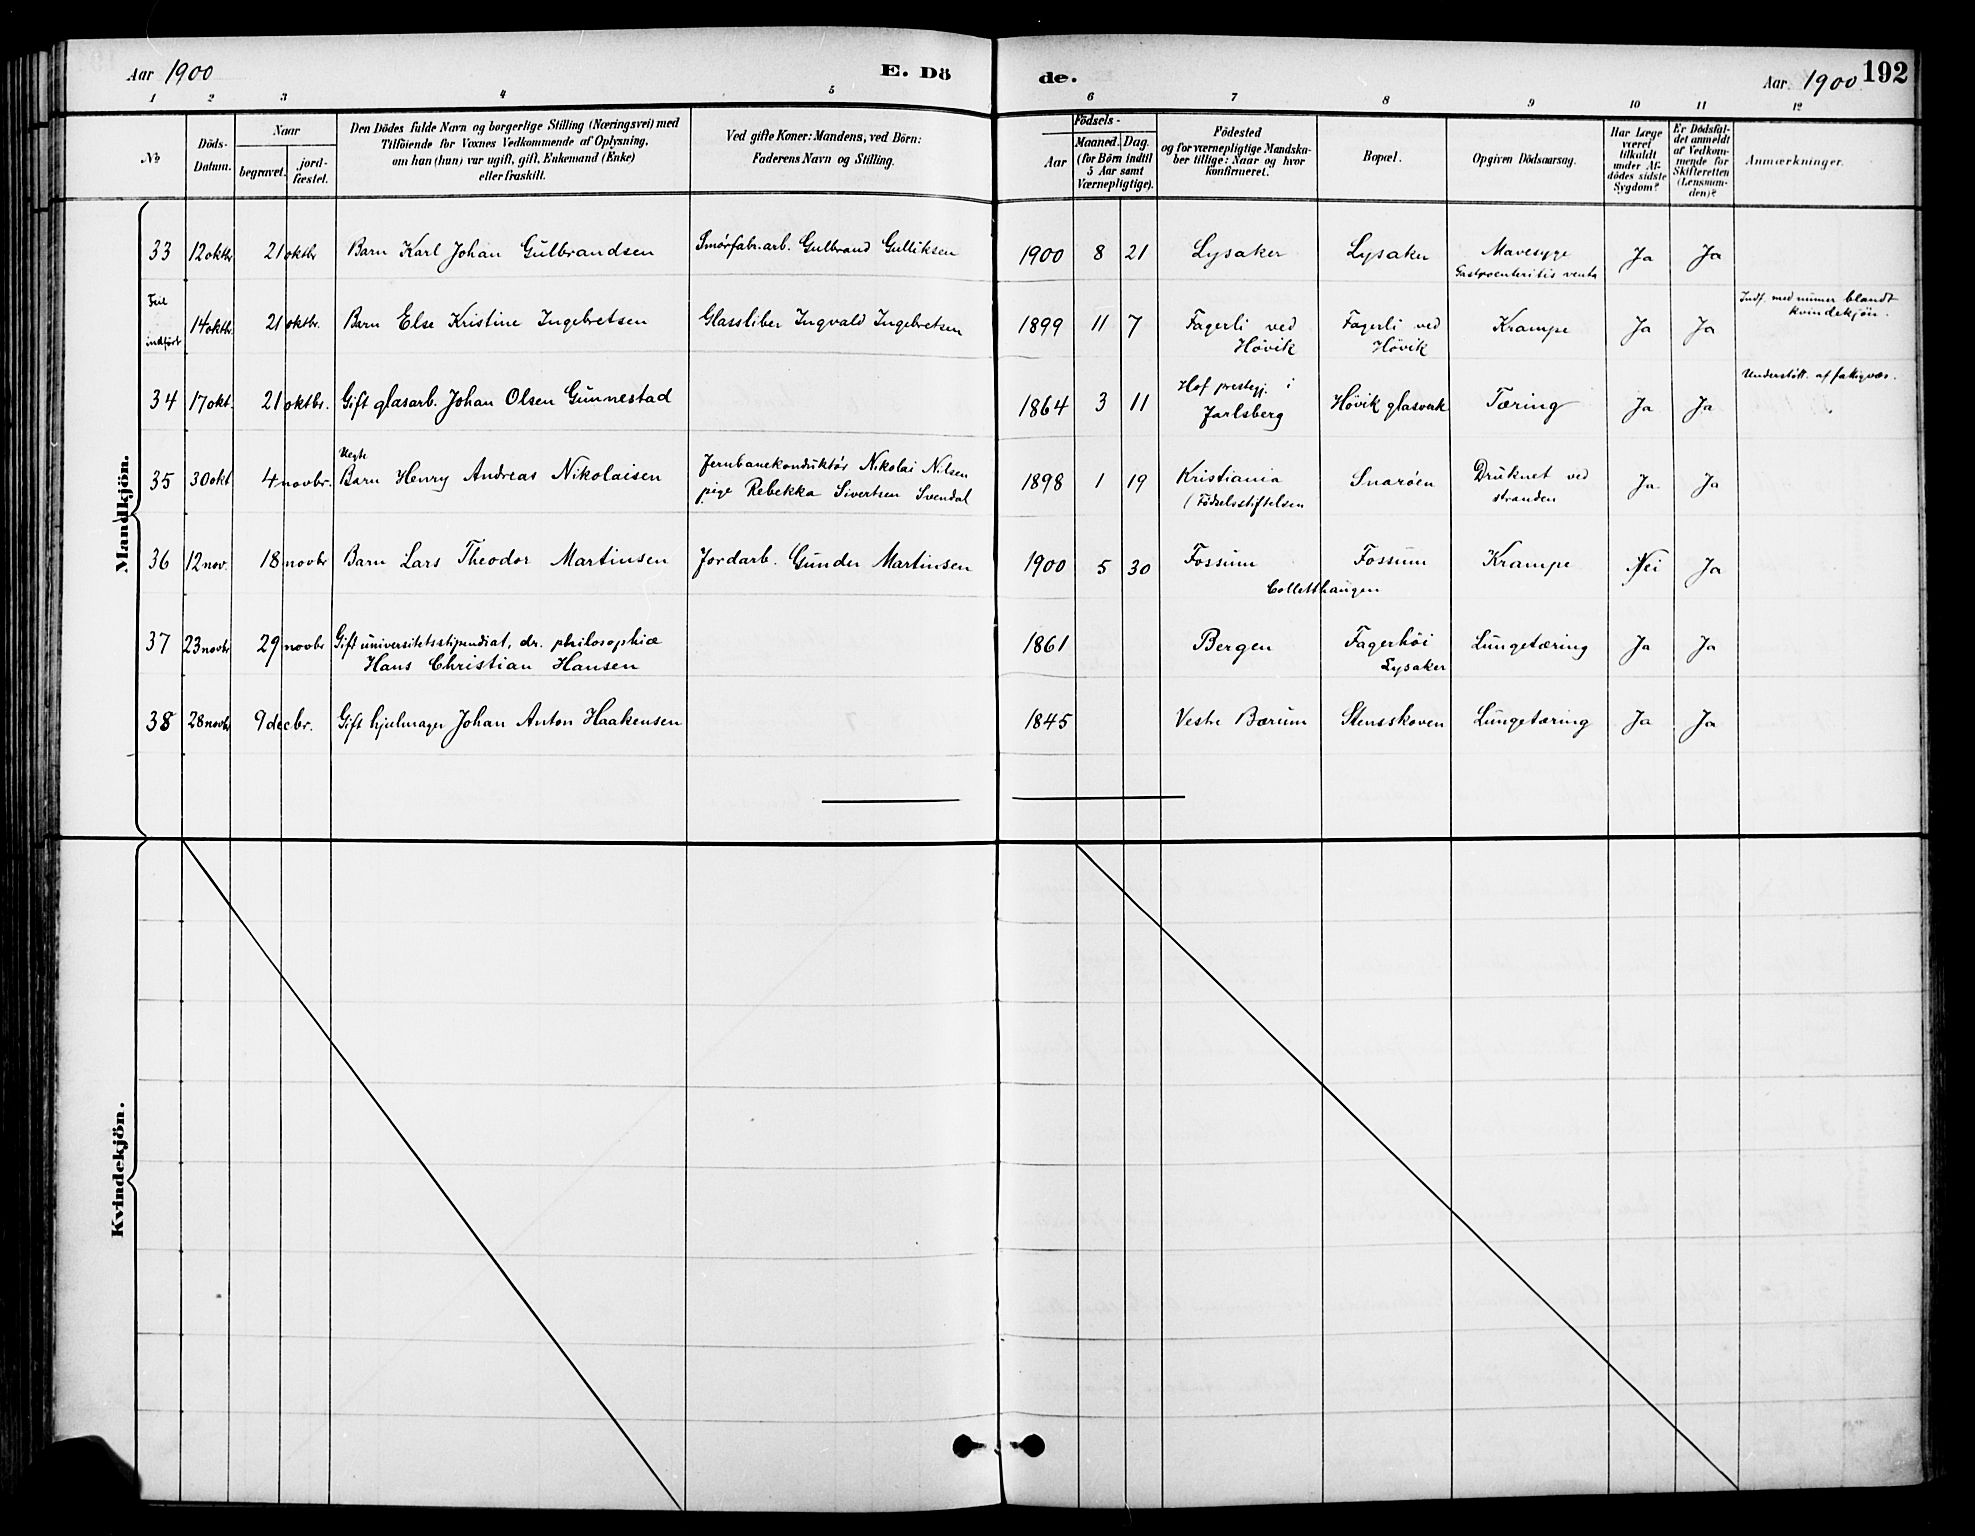 Aar 1900
E. Dö
de.
Aar 1900
192
1 2 3 4 5 6 7 8 9 10 11 12
No
Döds-
Datum.
Naar
begravet.
jord-
fæstet.
Den Dödes fulde Navn og borgerlige Stilling (Næringsvei) med
Tilföiende for Voxnes Vedkommende af Oplysning,
om han (hun) var ugift, gift, Enkemand (Enke)
eller fraskilt.
Ved gifte Koner: Mandens, ved Börn:
Faderens Navn og Stilling.
Födsels-
Aar
Maaned. Dag.
(for Börn indtil
5 Aar samt
Værnepligtige).
Födested
og for værnepligtige Mandska-
ber tillige: Naar og hvor
konfirmeret.
Bopæl.
Opgiven Dödsaarsag.
Har Læge
været
tilkaldt
under Af-
dödes sidste
Sygdom?
Er Dödsfal-
det anmeldt
af Vedkom-
mende for
Skifteretten
(Lensman-
den)?
Anmærkninger.
Mandkjön.
33 12 oktbr 21 oktbr Barn Karl Johan Gulbrandsen Smörfabr.arb. Gulbrand Gulliksen 1900 8 21 Lysaker Lysaker Mavesyge Ja Ja
Gastroenteritis
Feil
indført
14 oktbr. 21 oktbr. Barn Else Kristine Ingebretsen Glassliber Ingvald Ingebretsen 1899 11 7 Fagerli ved Fagerli ved Krampe Ja Ja
Hövik Hövik
Indf. med numer blandt
kvindekjön.
34 17 okt. 21 oktbr. Gift glasarb. Johan Olsen Gunnestad 1864 3 11 Hof prestegj. i
Jarlsberg Hövik glasverk Tæring Ja Ja
Understött. af fattigvæs.
35 30 okt 4 novbr. Uegte
Barn Henry Andreas Nikolaisen Jernbanekonduktör Nikolai Nilsen
pige Rebekka Sivertsen Svendal 1898 1 19 Kristiania
(Födselsstiftelsen Snaröen Druknet ved
stranden Ja Ja
36 12 nov. 18 novbr Barn Lars Theodor Martinsen Jordarb. Gunder Martinsen 1900 5 30 Fossum Fossum Krampe Nei Ja
Colletthaugen
37 23 novbr 29 novbr Gift universitetsstipendiat, dr. philosophiæ
Hans Christian Hansen 1861 Bergen Fagerhöi
Lysaker Lungetæring Ja Ja
38 28 novbr 9 decbr. Gift hjulmager Johan Anton Haakensen 1845 Vestre Bærum Stensskoven Lungetæring Ja Ja
Kvindekjön.